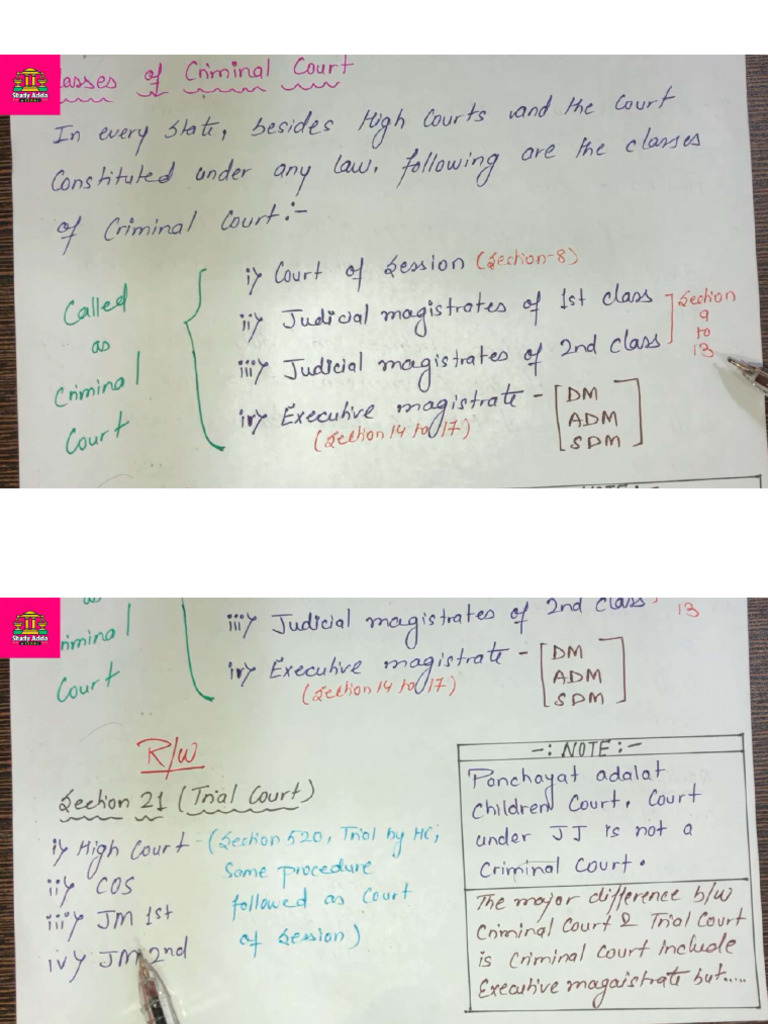 Study Adda
lasses of Criminal Court
In every state, besides High Courts and the Court
Constituted under any law, following are the classes
of Criminal Court:-
Called
as
Criminal
Court
i) Court of Session (Section-8)
ii) Judicial magistrates of 1st class
iii) Judicial magistrates of 2nd class
Section
9
to
13
iv) Executive magistrate -
(Section 14 to 17)
DM
ADM
SDM
Study Adda
as
riminal
Court
iii) Judicial magistrates of 2nd class
13
iv) Executive magistrate -
(Section 14 to 17)
DM
ADM
SDM
R/W
Section 21 (Trial Court)
i) High Court - (Section 520, Trial by HC,
Same procedure
followed as Court
of Session)
ii) COS
iii) JM 1st
iv) JM 2nd
-: NOTE :-
Panchayat adalat
Children Court, Court
under JJ is not a
Criminal Court.
The major difference b/w
Criminal Court & Trial Court
is Criminal Court Include
Executive magaistrate but.....